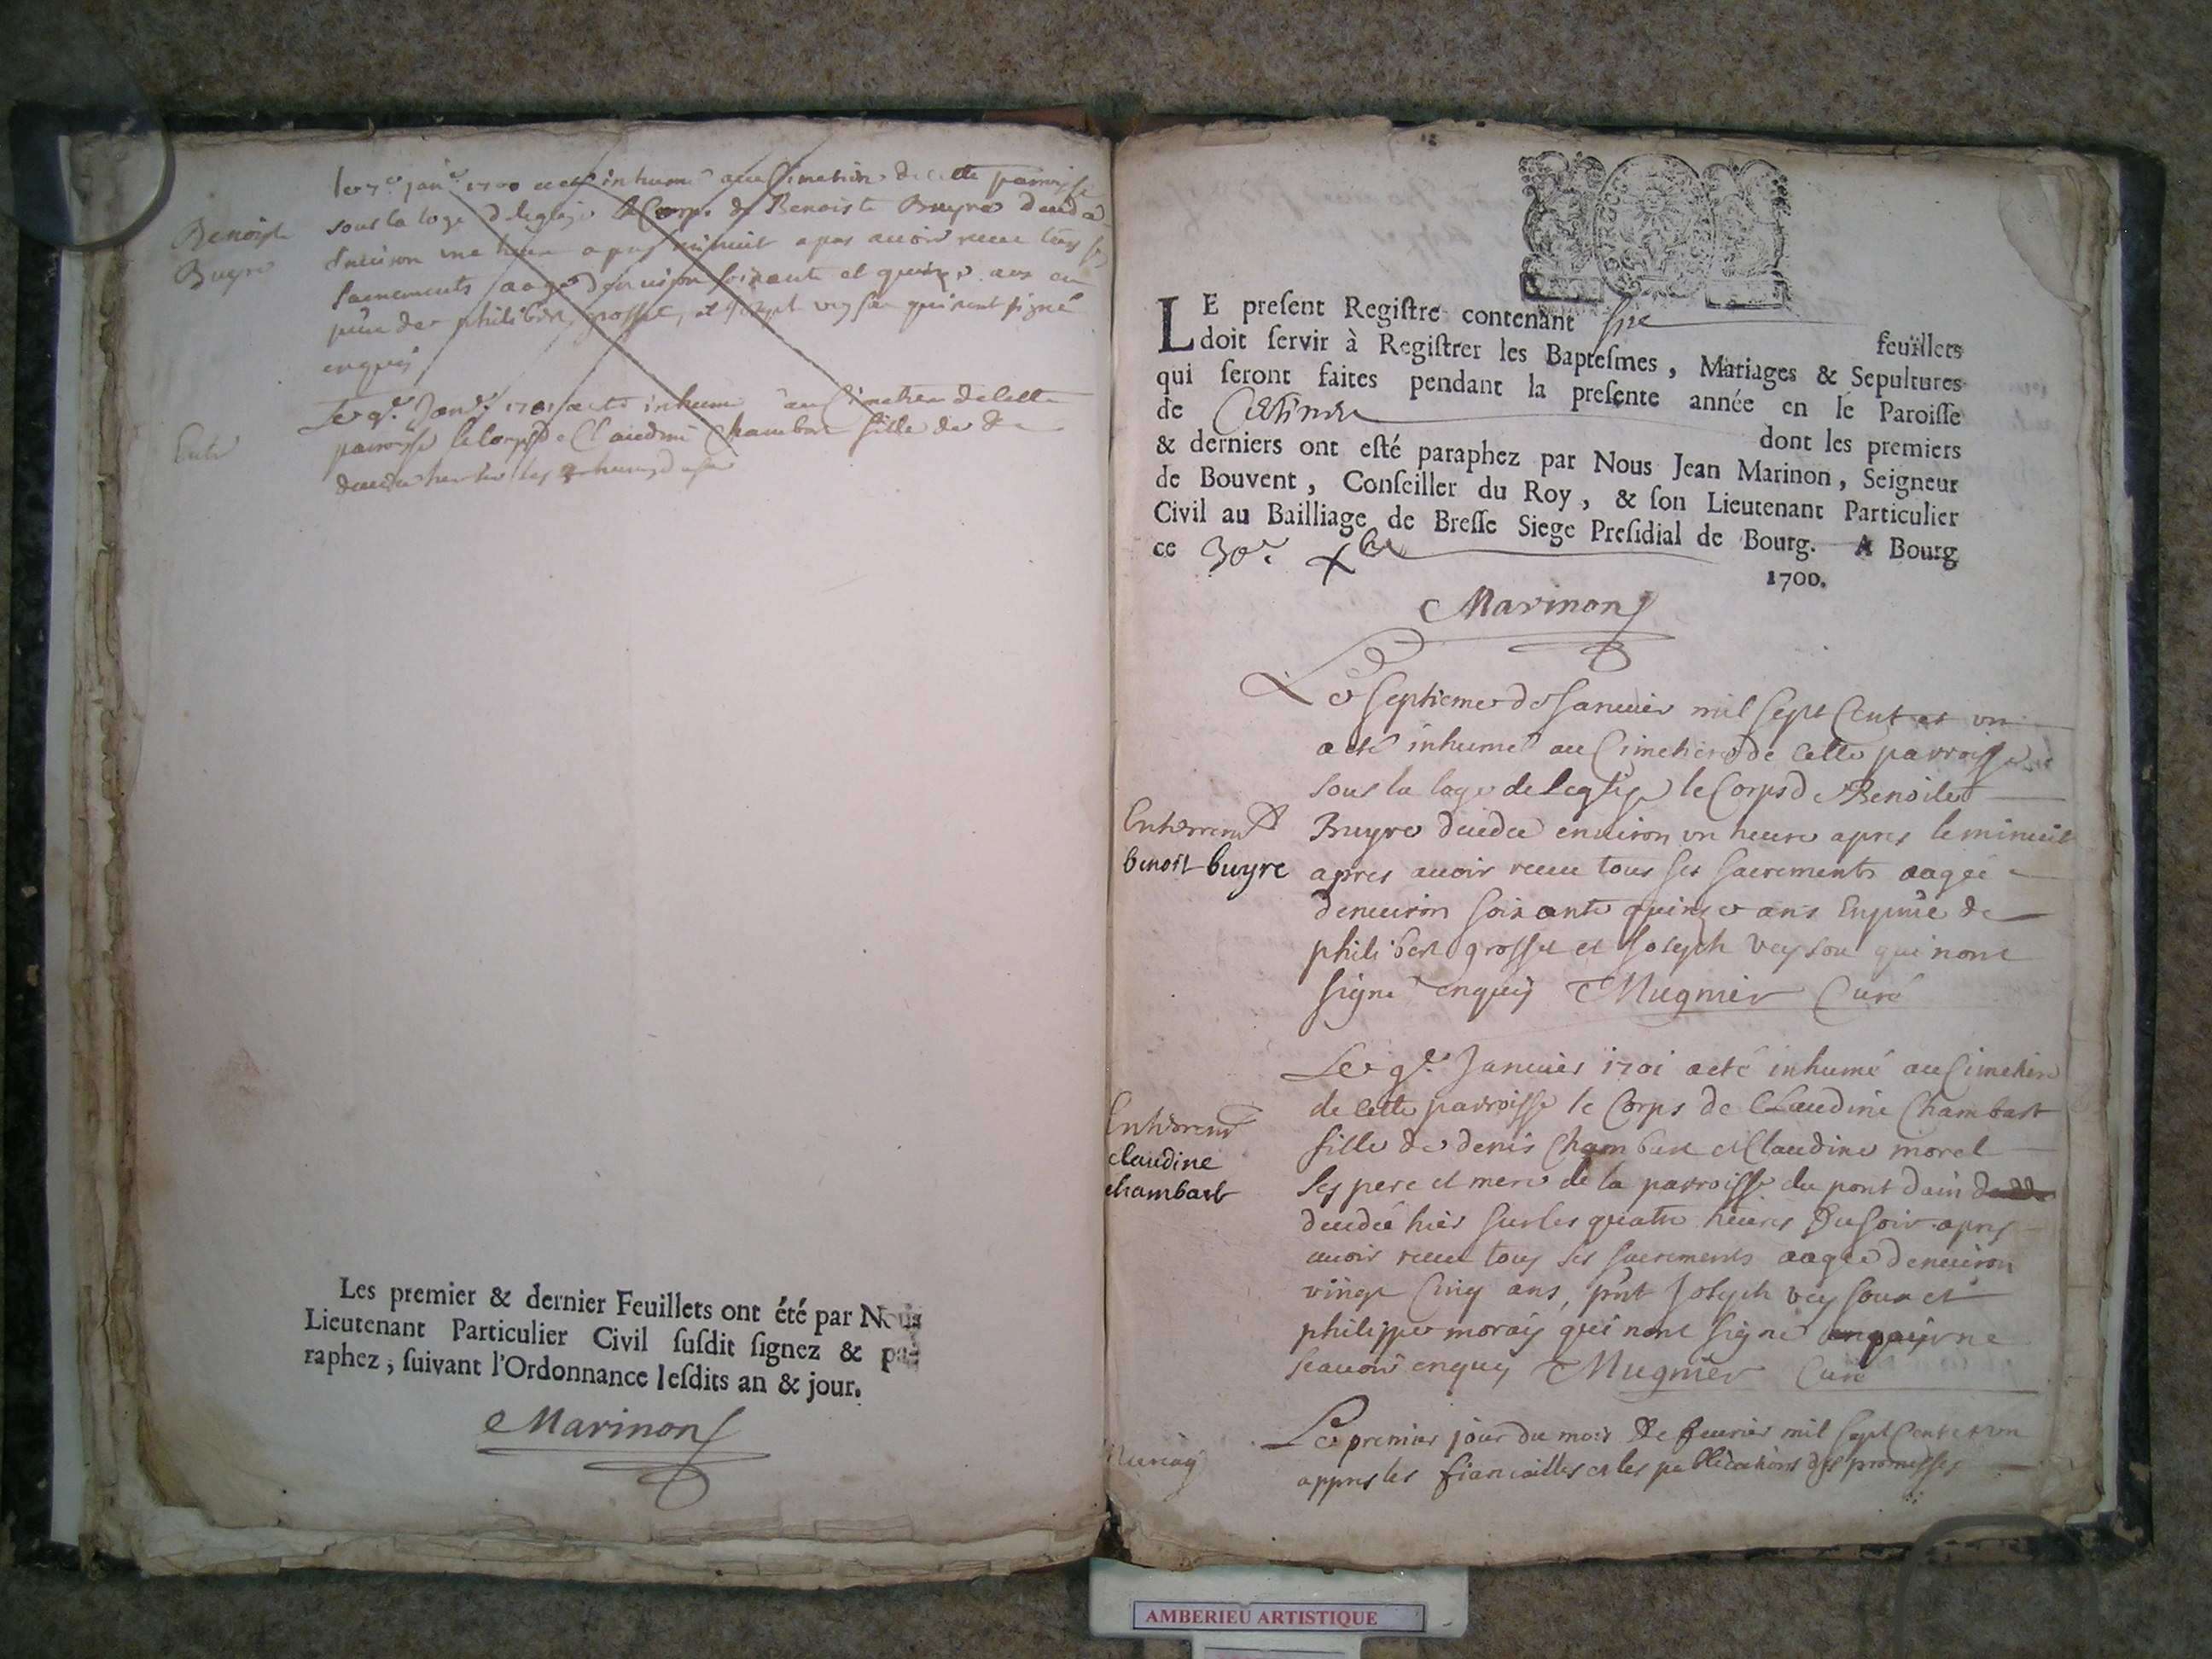 Benoiste
Buyre
le 7e janr 1700 a esté inhumé au Cimetiere de cette parroisse
sous la loge de leglise le Corps de Benoiste Buyre deudée
enuiron une heure apres minuit apres auoir receu tous ses
sacrements aagée denuiron soixante et quinze ans en
pnce de philibert grosset, et Joseph veyson qui nont signé
enquis
Le 9e Janr 1701 a esté inhumé au Cimetiere de cette
parroisse le corps de Claudine Chambart fille de
Ente
Les premier & dernier Feuillets ont été par Nous
Lieutenant Particulier Civil susdit signez & pa-
raphez, suivant l'Ordonnance lesdits an & jour.
Marinon
LE present Registre contenant six feuillets
doit servir à Registrer les Baptesmes, Mariages & Sepultures
qui seront faites pendant la presente année en le Paroisse
de dont les premiers
& derniers ont esté paraphez par Nous Jean Marinon, Seigneur
de Bouvent, Conseiller du Roy, & son Lieutenant Particulier
Civil au Bailliage de Bresse Siege Presidial de Bourg. A Bourg
ce 30e Xbre 1700.
Marinon
Le septieme de Januier mil sept Cent et un
a eté inhumé au Cimetiere de cette parroisse
sous la loge de leglise le Corps de Benoite
Buyre deudée enuiron un heure apres le minuit
apres auoir receu tous ses sacrements aagée
denuiron soixante quinze ans En pnce de
philibert grosset et Joseph veyson qui nont
signé enquis Mugnier Curé
Enterremt
benoit buyre
Le 9e Januier 1701 a eté inhumé au Cimetiere
de cette parroisse le Corps de Claudine Chambart
fille de denis Chambart et Claudine morel
ses pere et mere de la parroisse du pont dain
deudée hier sur les quatre heures du soir apres
auoir receu tous ses sacrements aagée denuiron
vingt Cinq ans, pnt Joseph veyson et
philippe moray qui nont signé ne
scauoir enquis Mugnier Curé
Enterremt
claudine
chambart
Le premier jour du mois de feurier mil sept Cent et un
appres les fiancailles et les publications des promesses
Mariag